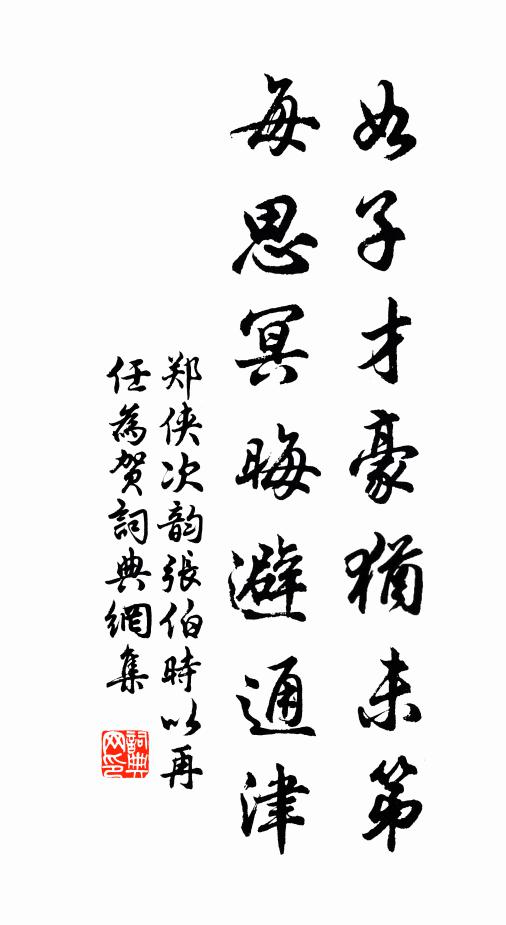 如子才豪犹未第
每思冥晦避通津
郑侠次韵張伯時以再
任為贺詞典網集
詞典网印